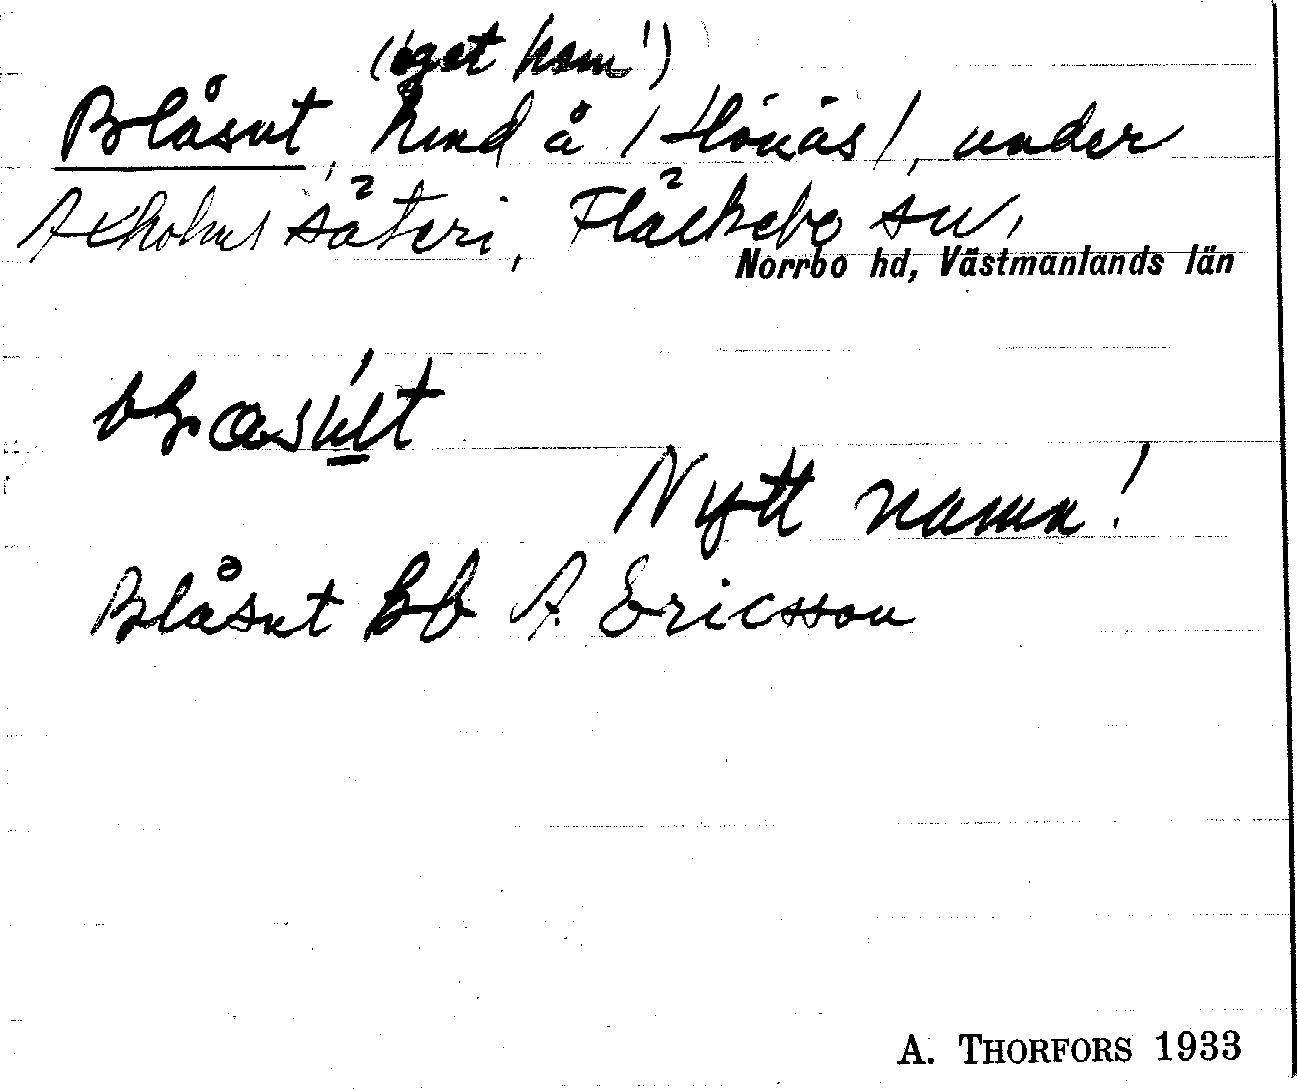 ('eget hem')
Blåsut, hmd å /Hönäs/, under
Axholms säteri, Fläckebo sn,
Norrbo hd, Västmanlands län
Nytt namn!
Blåsut bb A. Ericsson
A. THORFORS 1933